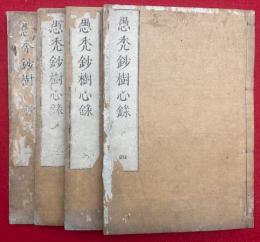 愚禿鈔樹心録 四
愚禿鈔樹心録
愚禿鈔樹心録
愚禿鈔樹